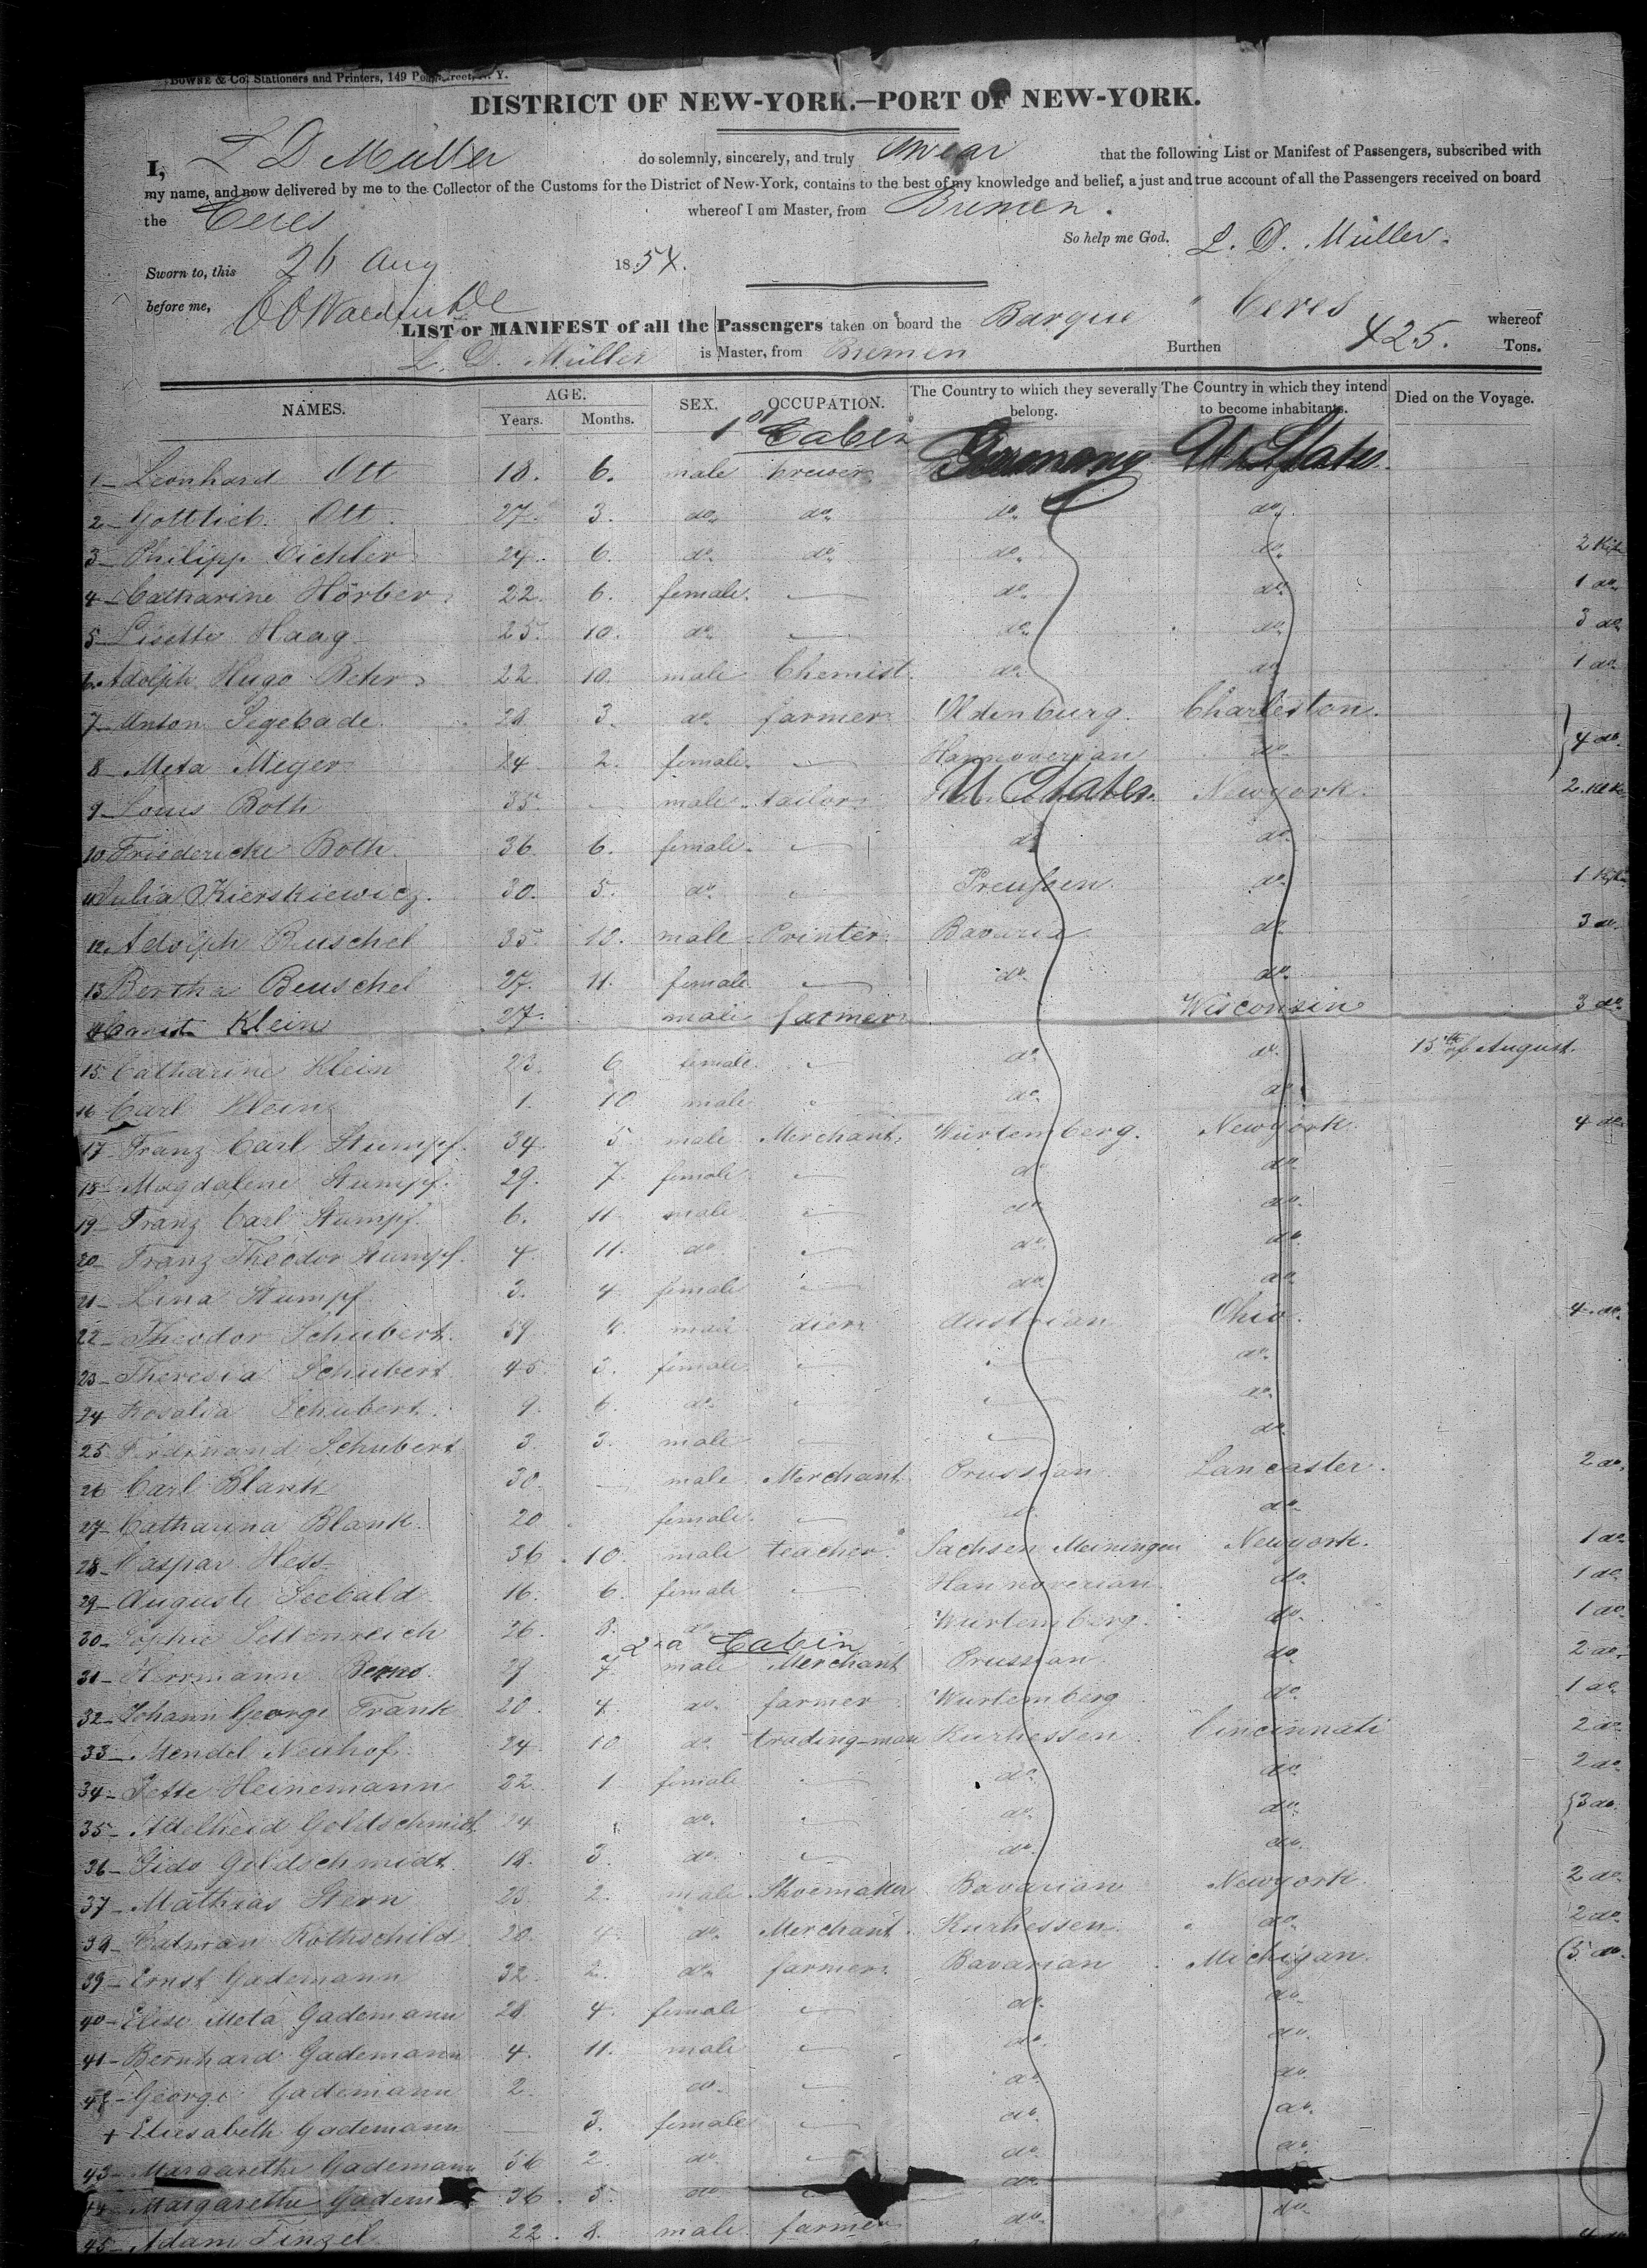 BOWNE & Co. Stationers and Printers, 149 Street, N. Y.
DISTRICT OF NEW-YORK.—PORT OF NEW-YORK.
I, L D Müller do solemnly, sincerely, and truly swear that the following List or Manifest of Passengers, subscribed with
my name, and now delivered by me to the Collector of the Customs for the District of New-York, contains to the best of my knowledge and belief, a just and true account of all the Passengers received on board
the Ceres whereof I am Master, from Bremen.
So help me God. L. D. Müller.
Sworn to, this 26 Aug 1854.
before me,
LIST or MANIFEST of all the Passengers taken on board the Barque Ceres whereof
L. D. Müller is Master, from Bremen Burthen 425. Tons.
NAMES. AGE. Years. Months. SEX. OCCUPATION. The Country to which they severally belong. The Country in which they intend to become inhabitants. Died on the Voyage.
1st Cabin
1 Leonhard Ott 18. 6. male brewer Germany U States
2 Gottlieb Ott 27. 3. do. do. do. do.
3 Philipp Eichler 24. 6. do. do. do. do. 2
4 Catharine Hörber 22. 6. female. — do. do. 1 do.
5 Lisette Haag 25. 10. do. — do. do. 3 do.
6 Adolph Hugo Behr 22. 10. male Chemist. do. do. 1 do.
7 Anton Segebade 28 3. do. farmer Oldenburg. Charleston.
8 Meta Meyer 24 2. female. — Hannoverian do. 4 do.
9 Louis Both 35. — male tailor U States Newyork. 2
10 Friedericke Both. 36 6. female. — do. do.
11 Julia Kierskiewicz. 30. 5. do. — Preußen. do. 1
12 Adolph Beuschel 35. 10. male Printer Bavaria do. 3 do.
13 Bertha Beuschel 27. 11. female — do. do.
14 Klein 27. male farmer Wisconsin 3 do.
15 Catharine Klein 23. 6 female. — do. do. 15th of August.
16 Carl Klein 1. 10 male do. do.
17 Franz Carl Stumpf. 34. 5 male Merchant. Würtemberg. Newyork. 4 do.
18 Magdalene Stumpf. 29. 7. female — do. do.
19 Franz Carl Stumpf. 6. 11. male — do. do.
20 Franz Theodor Stumpf. 4 11. do. — do. do.
21 Lina Stumpf 3. 4 female — do. do.
22 Theodor Schubert. 59 male dier Austrian Ohio. 4 do.
23 Theresia Schubert 45 3. female — — do.
24 Rosalia Schubert. 9. 6 do. — — do.
25 Ferdinand Schubert 3. 3. male — — do.
26 Carl Blank 30. — male Merchant. Prussian Lancaster. 2 do.
27 Catharina Blank. 20 female. — do. do.
28 Caspar Hess 36. 10. male teacher. Sachsen Meiningen Newyork. 1 do.
29 Auguste Seebald 16. 6. female — Hannoverian do. 1 do.
30 Sophie Settenreich 26. 8. do. Würtemberg. do. 1 do.
2nd Cabin
31 Herrmann Berns 29 7 male Merchant Prussian. do. 2 do.
32 Johann George Frank 20. 4. do. farmer Würtemberg do. 1 do.
33 Mendel Neuhof. 24. 10 do. trading-man Kurhessen Cincinnati 2 do.
34 Jette Heinemann 22. 1 female — do. do. 2 do.
35 Adelheid Goldschmidt 24 do. — do. do. 3 do.
36 Goldschmidt. 18. 3. do. — do. do.
37 Mathias Stern 23. 2. male Shoemaker Bavarian Newyork. 2 do.
38 Rothschild 20. 4. do. Merchant. Kurhessen. do. 2 do.
39 Ernst Gademann 32. 2. do. farmer Bavarian Michigan. 5 do.
40 Elise Meta Gademann 28 4. female — do. do.
41 Bernhard Gademann 4. 11. male — do. do.
42 George Gademann 2. do. — do. do.
+ Eliesabeth Gademann — 3. female — do. do.
43 Margarethe Gademann 56 2. do. — do. do.
44 Margarethe Gadem 36. 5. do. — do. do.
45 Adam Finzel 22. 8. male farmer do. do. 4 do.